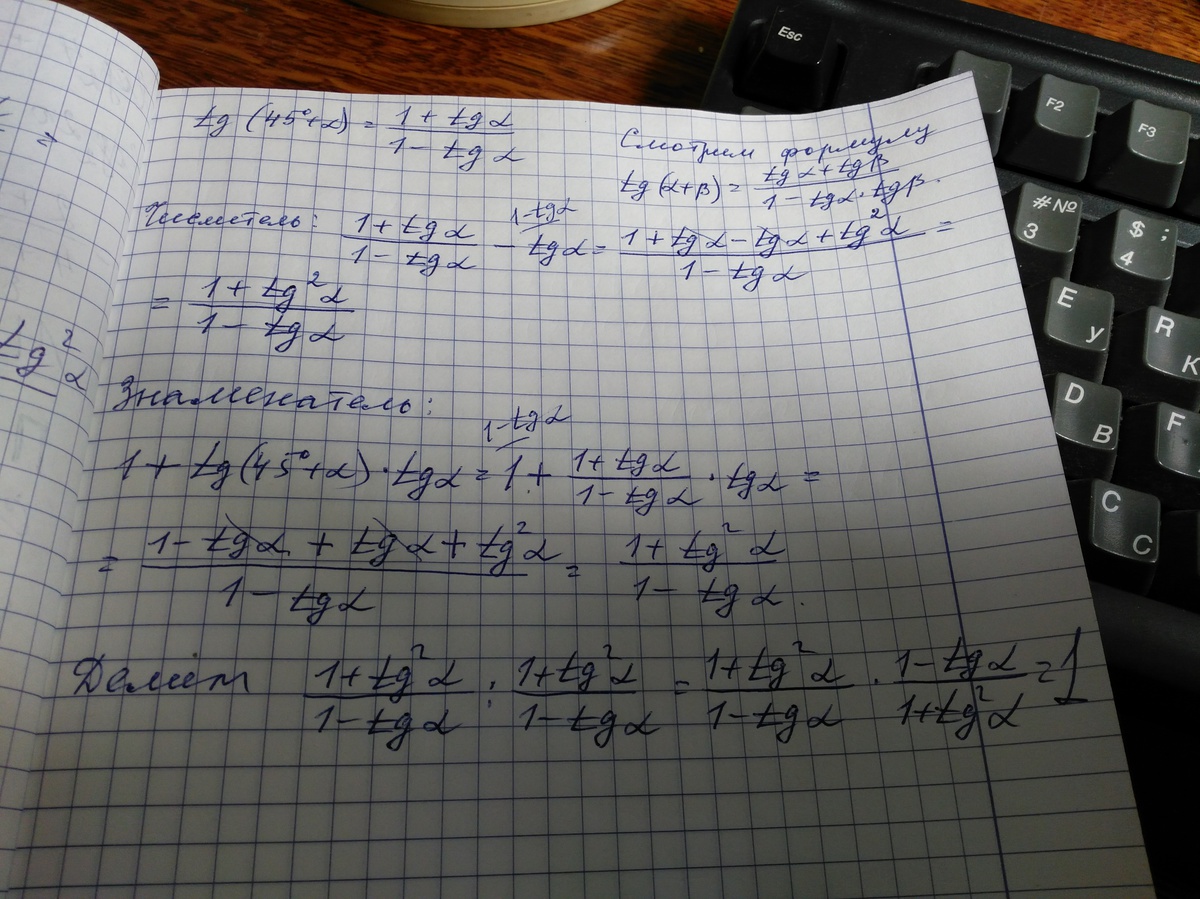 tg (45°+α) = (1 + tg α)/(1 - tg α)
Смотрим формулу
tg(α+β) = (tg α + tg β)/(1 - tgα · tgβ).
Числитель: (1 + tg α)/(1 - tg α) - tgα = (1 + tgα - tgα + tg²α)/(1 - tgα) =
1-tgα
= (1 + tg²α)/(1 - tgα)
Знаменатель:
1-tgα
1 + tg(45°+α) · tgα = 1 + (1+tgα)/(1-tgα) · tgα =
= (1 - tgα + tgα + tg²α)/(1 - tgα) = (1 + tg²α)/(1 - tgα).
Делим (1+tg²α)/(1-tgα) : (1+tg²α)/(1-tgα) = (1+tg²α)/(1-tgα) · (1-tgα)/(1+tg²α) = 1
=
tg²α
Esc
F2
F3
#№
3
$ ;
4
E
У
R
К
D
В
F
C
С